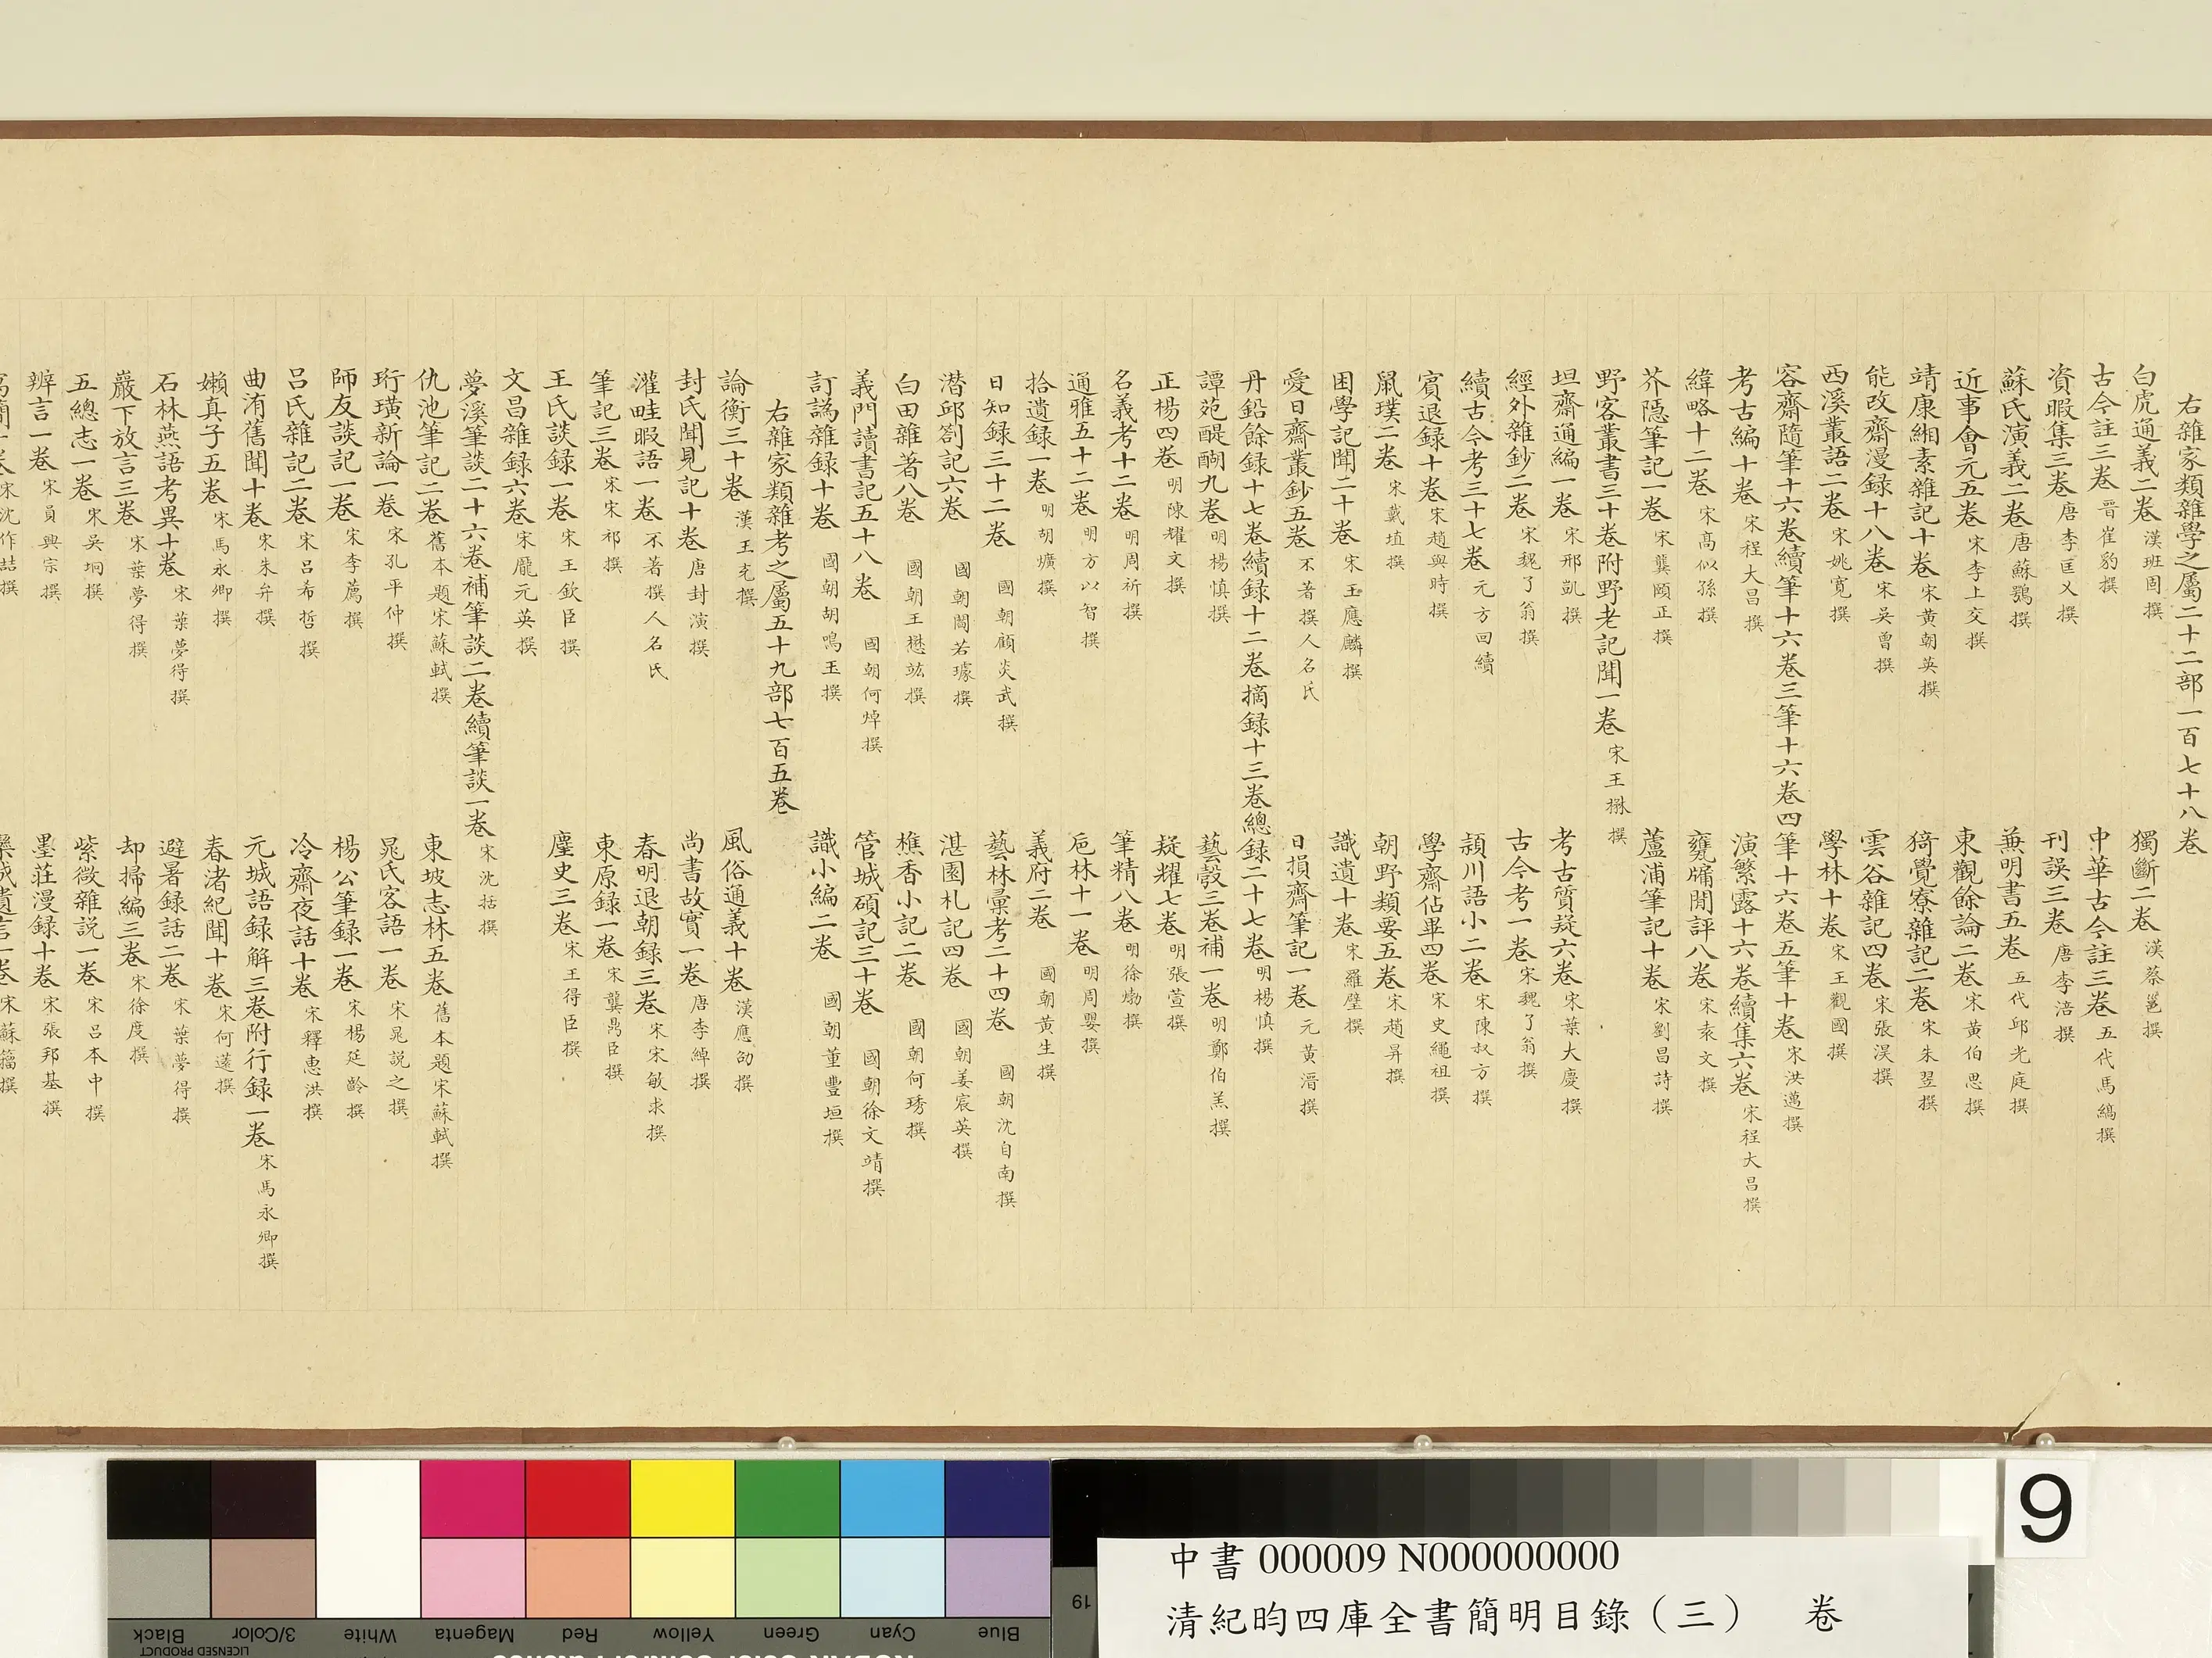 右雜家類雜學之屬二十二部一百七十八卷
白虎通義二卷 漢班固撰 獨斷二卷 漢蔡邕撰
古今註三卷 晉崔豹撰 中華古今註三卷 五代馬縞撰
資暇集三卷 唐李匡乂撰 刊誤三卷 唐李涪撰
蘇氏演義二卷 唐蘇鶚撰 兼明書五卷 五代邱光庭撰
近事會元五卷 宋李上交撰 東觀餘論二卷 宋黃伯思撰
靖康緗素雜記十卷 宋黃朝英撰 猗覺寮雜記二卷 宋朱翌撰
能改齋漫録十八卷 宋吳曾撰 雲谷雜記四卷 宋張淏撰
西溪叢語二卷 宋姚寬撰 學林十卷 宋王觀國撰
容齋隨筆十六卷續筆十六卷三筆十六卷四筆十六卷五筆十卷 宋洪邁撰
考古編十卷 宋程大昌撰 演繁露十六卷續集六卷 宋程大昌撰
緯略十二卷 宋高似孫撰 甕牖閒評八卷 宋袁文撰
芥隱筆記一卷 宋龔頤正撰 蘆浦筆記十卷 宋劉昌詩撰
野客叢書三十卷附野老記聞一卷 宋王楙撰
坦齋通編一卷 宋邢凱撰 考古質疑六卷 宋葉大慶撰
經外雜鈔二卷 宋魏了翁撰 古今考一卷 宋魏了翁撰
續古今考三十七卷 元方回續 潁川語小二卷 宋陳叔方撰
賓退録十卷 宋趙與時撰 學齋佔畢四卷 宋史繩祖撰
鼠璞二卷 宋戴埴撰 朝野類要五卷 宋趙昇撰
困學記聞二十卷 宋王應麟撰 識遺十卷 宋羅璧撰
愛日齋叢鈔五卷 不著撰人名氏 日損齋筆記一卷 元黃溍撰
丹鉛餘録十七卷續録十二卷摘録十三卷總録二十七卷 明楊慎撰
譚苑醍醐九卷 明楊慎撰 藝彀三卷補一卷 明鄭伯羔撰
正楊四卷 明陳耀文撰 疑耀七卷 明張萱撰
名義考十二卷 明周祈撰 筆精八卷 明徐𤊹撰
通雅五十二卷 明方以智撰 巵林十一卷 明周嬰撰
拾遺録一卷 明胡爌撰 義府二卷 國朝黃生撰
日知録三十二卷 國朝顧炎武撰 藝林彙考二十四卷 國朝沈自南撰
潛邱劄記六卷 國朝閻若璩撰 湛園札記四卷 國朝姜宸英撰
白田雜著八卷 國朝王懋竑撰 樵香小記二卷 國朝何琇撰
義門讀書記五十八卷 國朝何焯撰 管城碩記三十卷 國朝徐文靖撰
訂譌雜録十卷 國朝胡鳴玉撰 識小編二卷 國朝董豐垣撰
右雜家類雜考之屬五十九部七百五卷
論衡三十卷 漢王充撰 風俗通義十卷 漢應劭撰
封氏聞見記十卷 唐封演撰 尚書故實一卷 唐李綽撰
灌畦暇語一卷 不著撰人名氏 春明退朝録三卷 宋宋敏求撰
筆記三卷 宋宋祁撰 東原録一卷 宋龔鼎臣撰
王氏談録一卷 宋王欽臣撰 麈史三卷 宋王得臣撰
文昌雜録六卷 宋龐元英撰
夢溪筆談二十六卷補筆談二卷續筆談一卷 宋沈括撰
仇池筆記二卷 舊本題宋蘇軾撰 東坡志林五卷 舊本題宋蘇軾撰
珩璜新論一卷 宋孔平仲撰 晁氏客語一卷 宋晁說之撰
師友談記一卷 宋李廌撰 楊公筆録一卷 宋楊延齡撰
呂氏雜記二卷 宋呂希哲撰 冷齋夜話十卷 宋釋惠洪撰
曲洧舊聞十卷 宋朱弁撰 元城語録解三卷附行録一卷 宋馬永卿撰
嬾真子五卷 宋馬永卿撰 春渚紀聞十卷 宋何薳撰
石林燕語考異十卷 宋葉夢得撰 避暑録話二卷 宋葉夢得撰
巖下放言三卷 宋葉夢得撰 却掃編三卷 宋徐度撰
五總志一卷 宋吳坰撰 紫微雜說一卷 宋呂本中撰
辨言一卷 宋員興宗撰 墨莊漫録十卷 宋張邦基撰
寓簡十卷 宋沈作喆撰 欒城遺言一卷 宋蘇籀撰
9
中書 000009 N000000000
清紀昀四庫全書簡明目錄（三） 卷
19
Black 3/Color White Magenta Red Yellow Green Cyan Blue
LICENSED PRODUCT